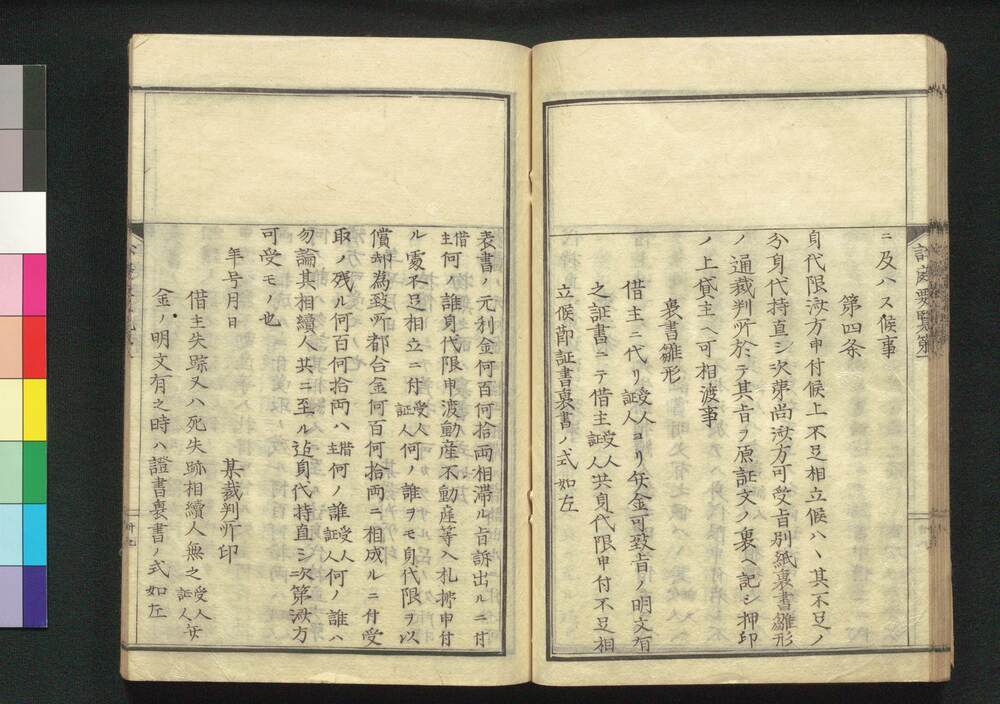 ニ及ハス候事
第四条
身代限済方申付候上不足相立候ハヽ其不足ノ
分身代持直シ次第尚済方可受旨別紙裏書雛形
ノ通裁判所於テ其旨ヲ原証文ノ裏ヘ記シ押印
ノ上貸主ヘ可相渡事
裏書雛形
借主ニ代リ受人証人ヨリ弁金可致旨ノ明文有
之証書ニテ借主受人証人共身代限申付不足相
立候節証書裏書ノ式如左
表書ノ元利金何百何拾両相滞ル旨訴出ルニ付
借主何ノ誰身代限申渡動産不動産等入札拂申付
ル処不足相立ニ付受人証人何ノ誰ヲモ身代限ヲ以
償却為致所都合金何百何拾両ニ相成ルニ付受
取ノ残ル何百何拾両ハ借主何ノ誰受人証人何ノ誰ハ
勿論其相續人共ニ至ル迠身代持直シ次第済方
可受モノ也
年号月日
某裁判所印
借主失踪又ハ死失跡相續人無之受人証人弁
金ノ明文有之時ハ證書裏書ノ式如左